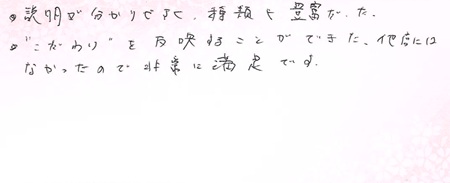 ●説明が分かりやすく、種類も豊富だった。
●"こだわり"を反映することができた、他店には
なかったので非常に満足です。